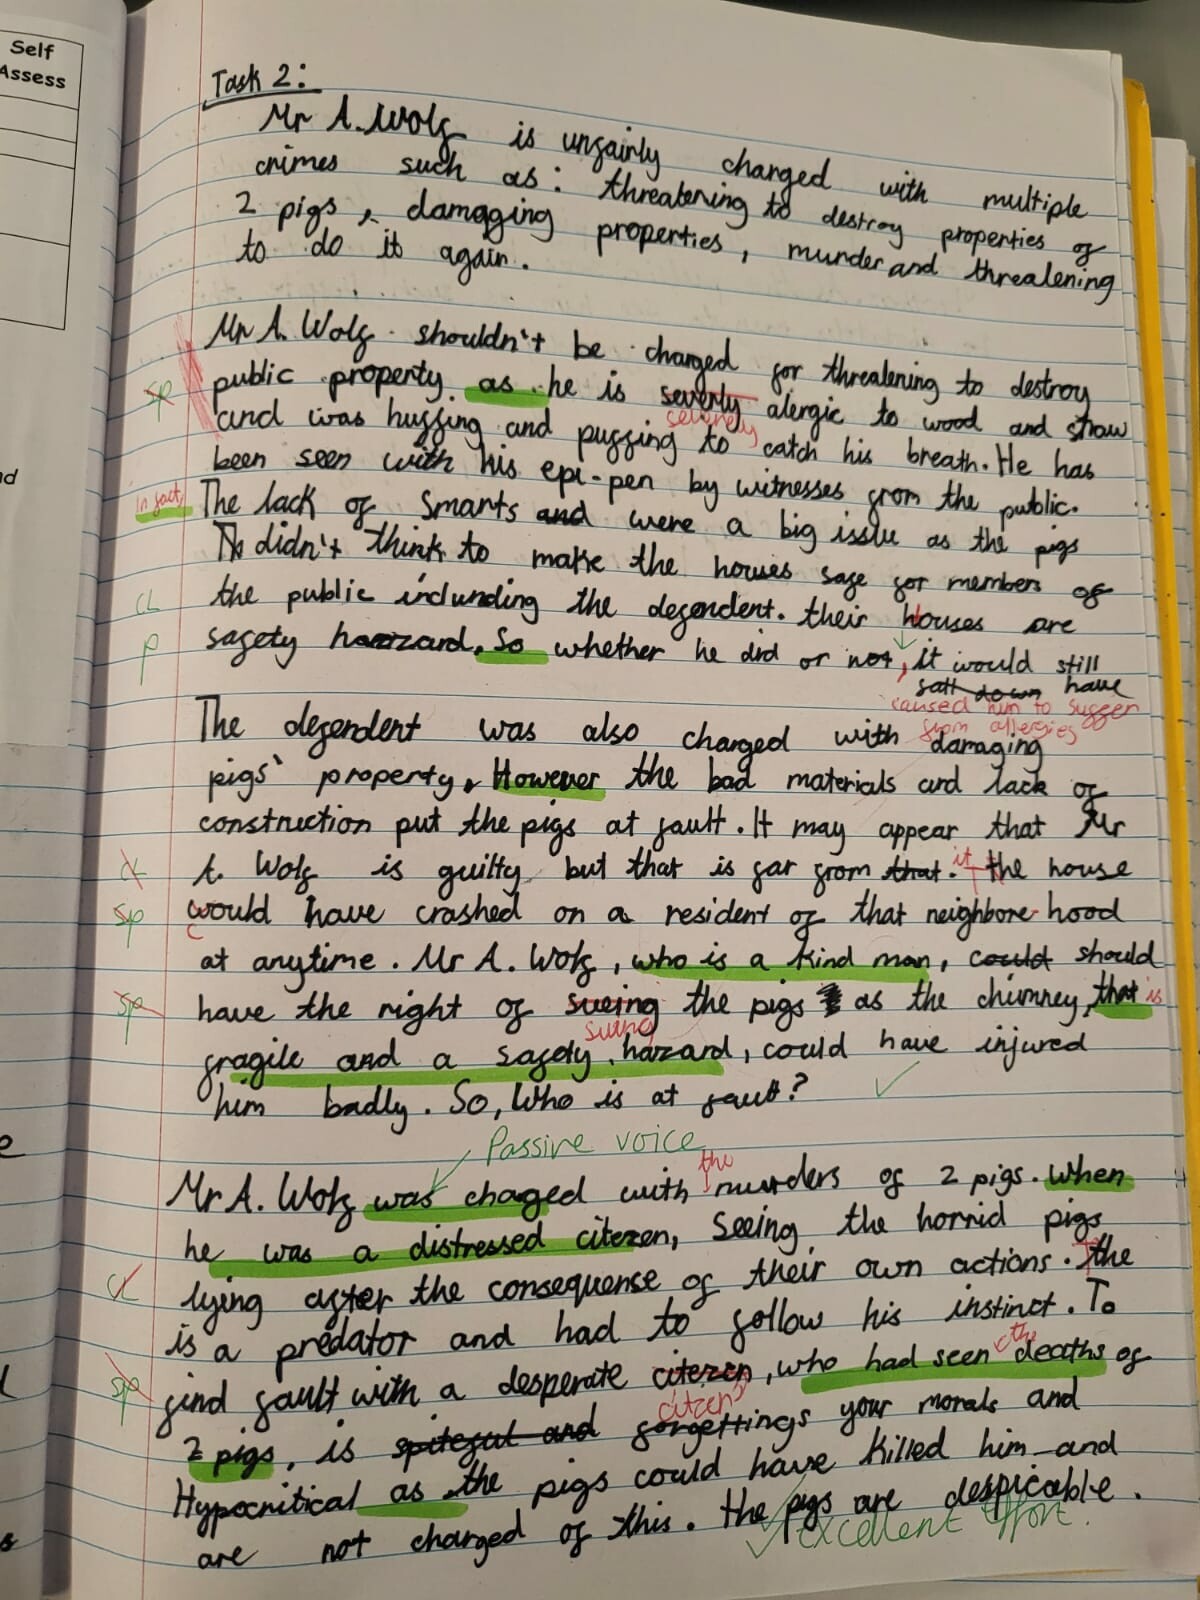 Self
Assess
Task 2:
Mr A. Wolf is unfairly charged with multiple
crimes such as: threatening to destroy properties of
2 pigs, damaging properties, murder and threatening
to do it again.
Mr A. Wolf shouldn't be charged for threatening to destroy
sp public property as he is severly alergic to wood and straw
severely
and was huffing and puffing to catch his breath. He has
been seen with his epi-pen by witnesses from the public.
in fact, The lack of smarts and were a big issue as the pigs
didn't think to make the houses safe for members of
CL the public inclunding the defendent. their houses are
p safety hazzard. So whether he did or not, it would still
salt down have
caused him to suffer
from allergies
The defendent was also charged with damaging
pigs' property, However the bad materials and lack of
construction put the pigs at fault. It may appear that Mr
CL A. Wolf is guilty but that is far from that. it the house
sp would have crashed on a resident of that neighbore-hood
C
at anytime. Mr A. Wolf, who is a kind man, could should
sp have the right of sueing the pigs as the chimney, that is
suing
fragile and a safety hazard, could have injured
him badly. So, Who is at fault?
Passive voice
the
Mr A. Wolf was chaged with murders of 2 pigs. When
he was a distressed citezen, seeing the horrid pigs
CL lying after the consequense of their own actions. The
is a predator and had to follow his instinct. To
the
sp find fault with a desperate citezen, who had seen deaths of
citizen
2 pigs, is spiteful and forgettings your morals and
Hypocritical as the pigs could have killed him and
are not charged of this. the pigs are despicable.
excellent effort.